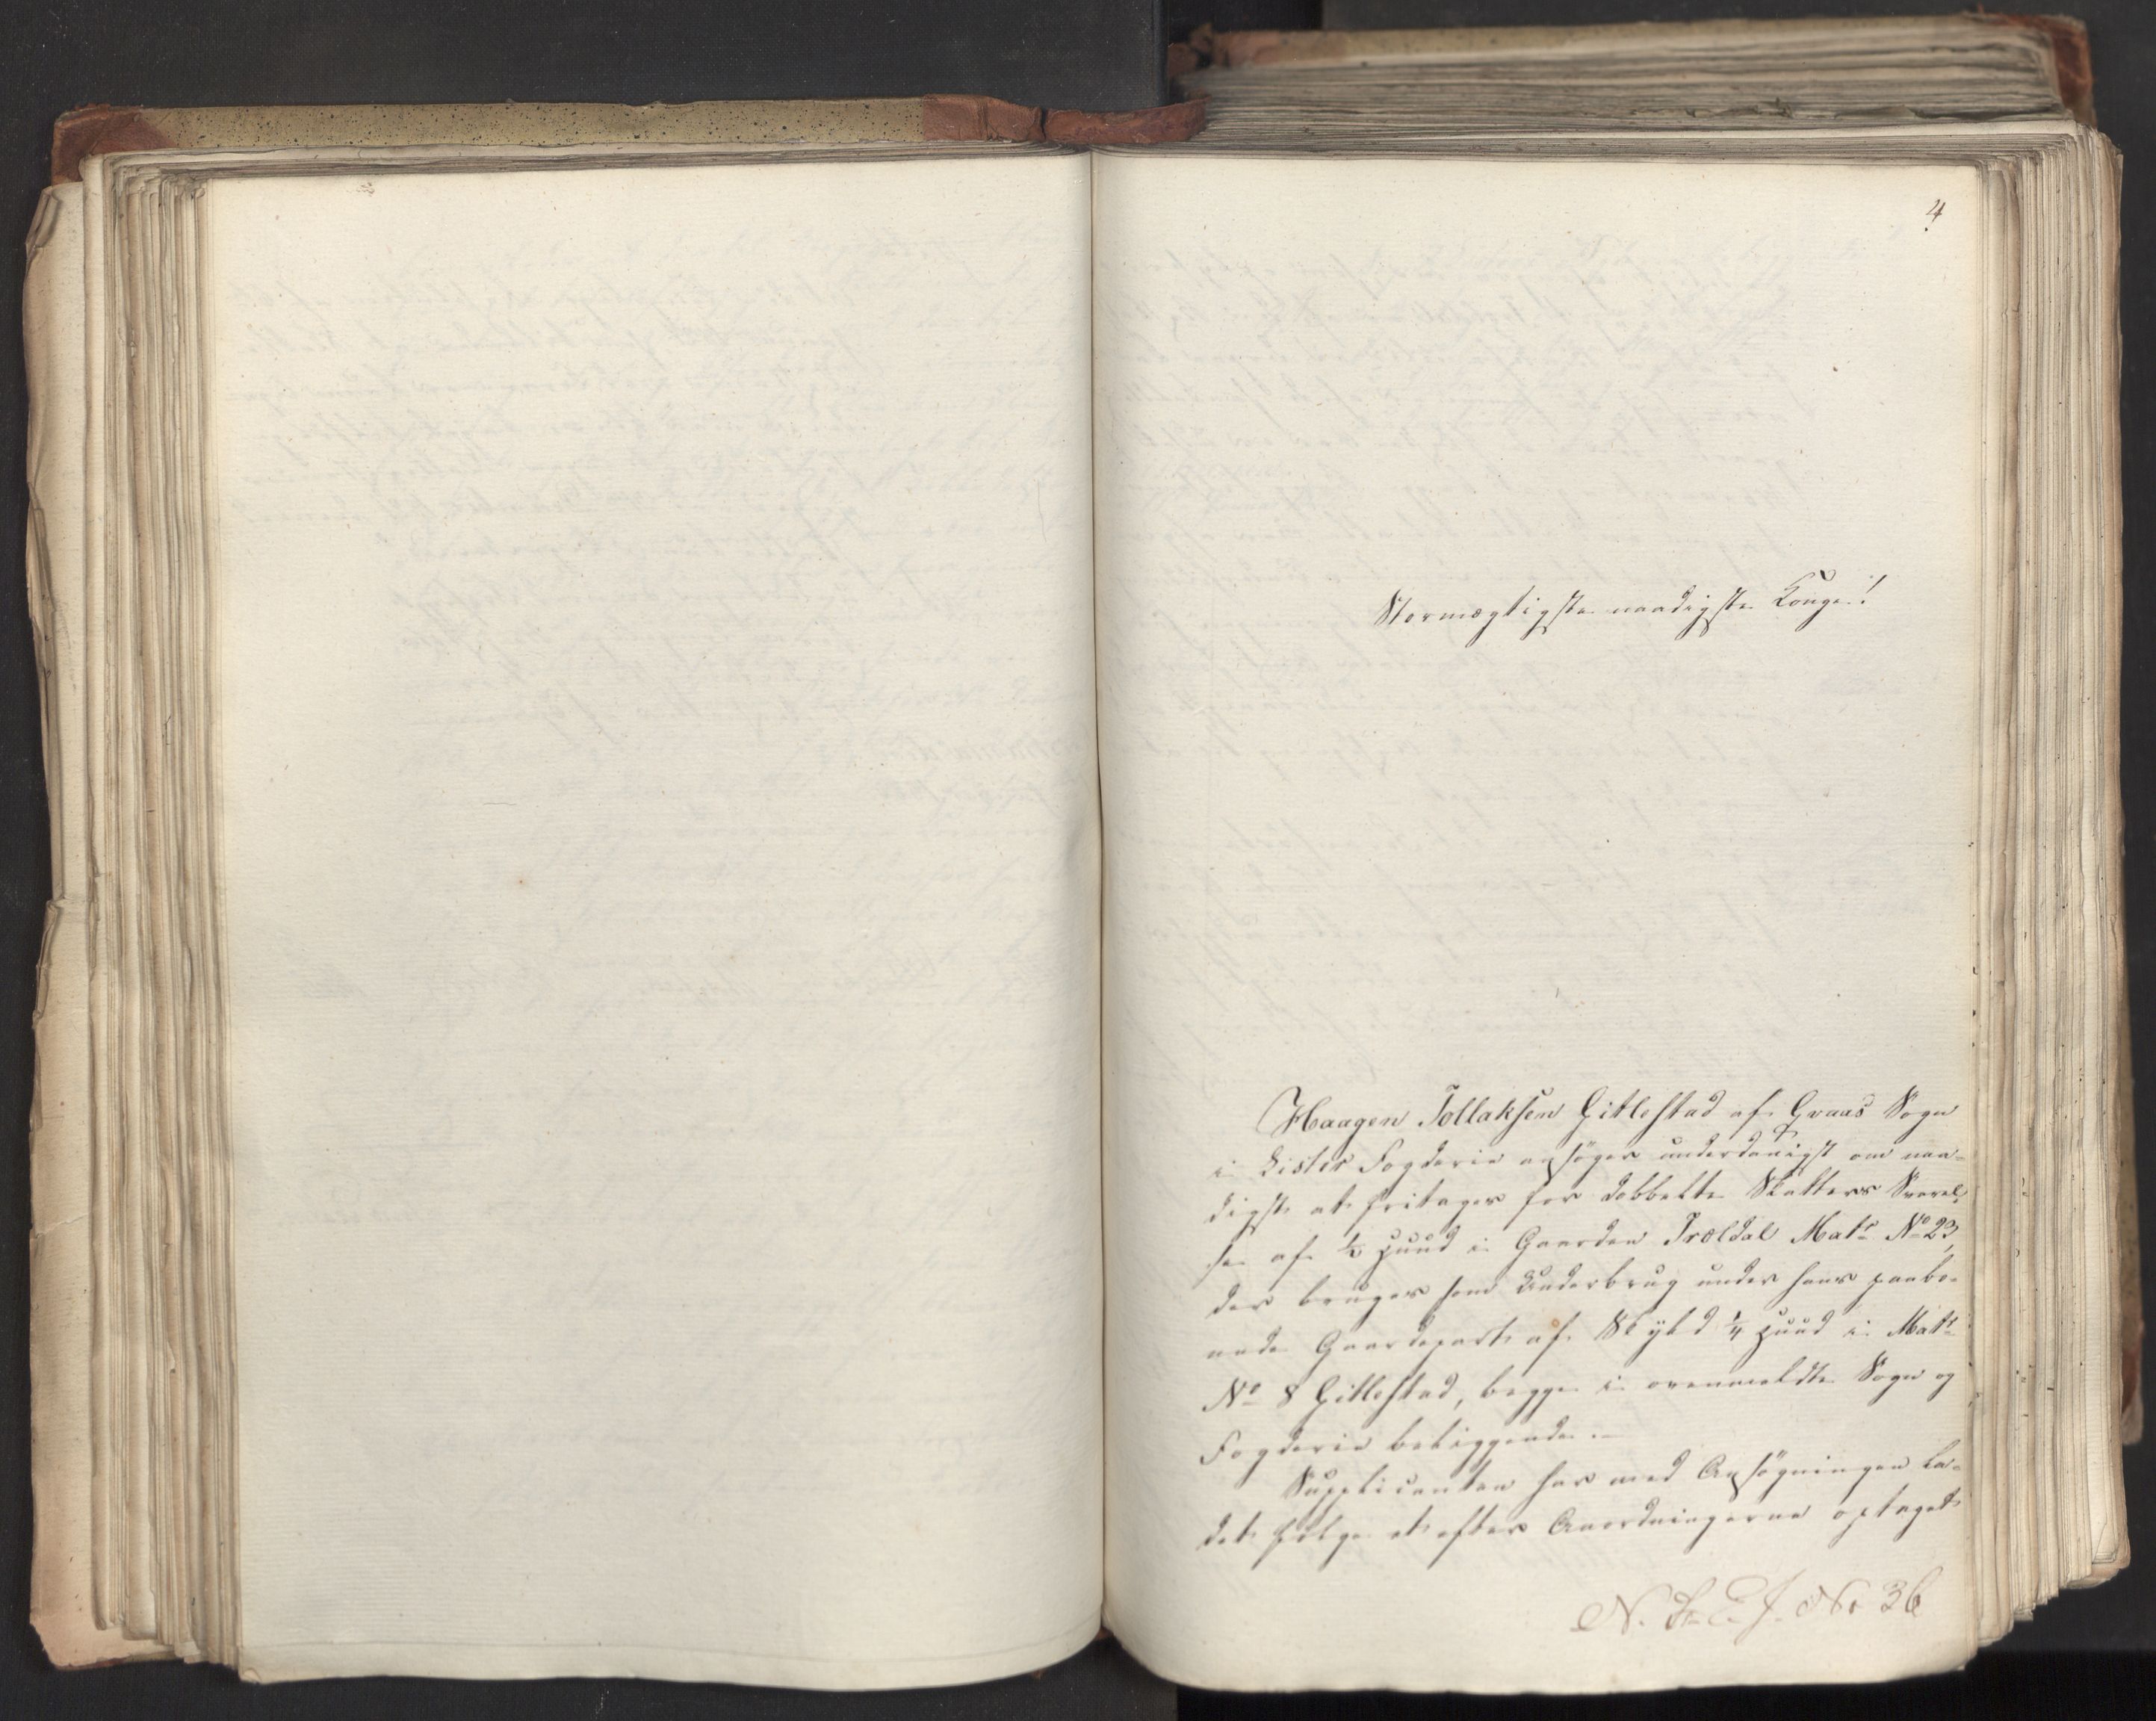 4
Stormægtigste naadigste Konge!
Haagen Tollaksen Gitlestad af Qvaas Sogn
i Lister Fogderie ansøger underdanigst om naa-
digst at fritages for dobbelte Skatters Svarel-
se af ½ Huud i Gaarden Troldal Matr No 23,
der bruges som Underbrug under hans paabo-
ende Gaardepart af Skyld ¼ Huud i Matr
No 8 Gitlestad, begge i ovenmeldte Sogn og
Fogderie beliggende.-
Supplicanten har med Ansøgningen la-
det følge et efter Anordningerne optaget
N. No 36